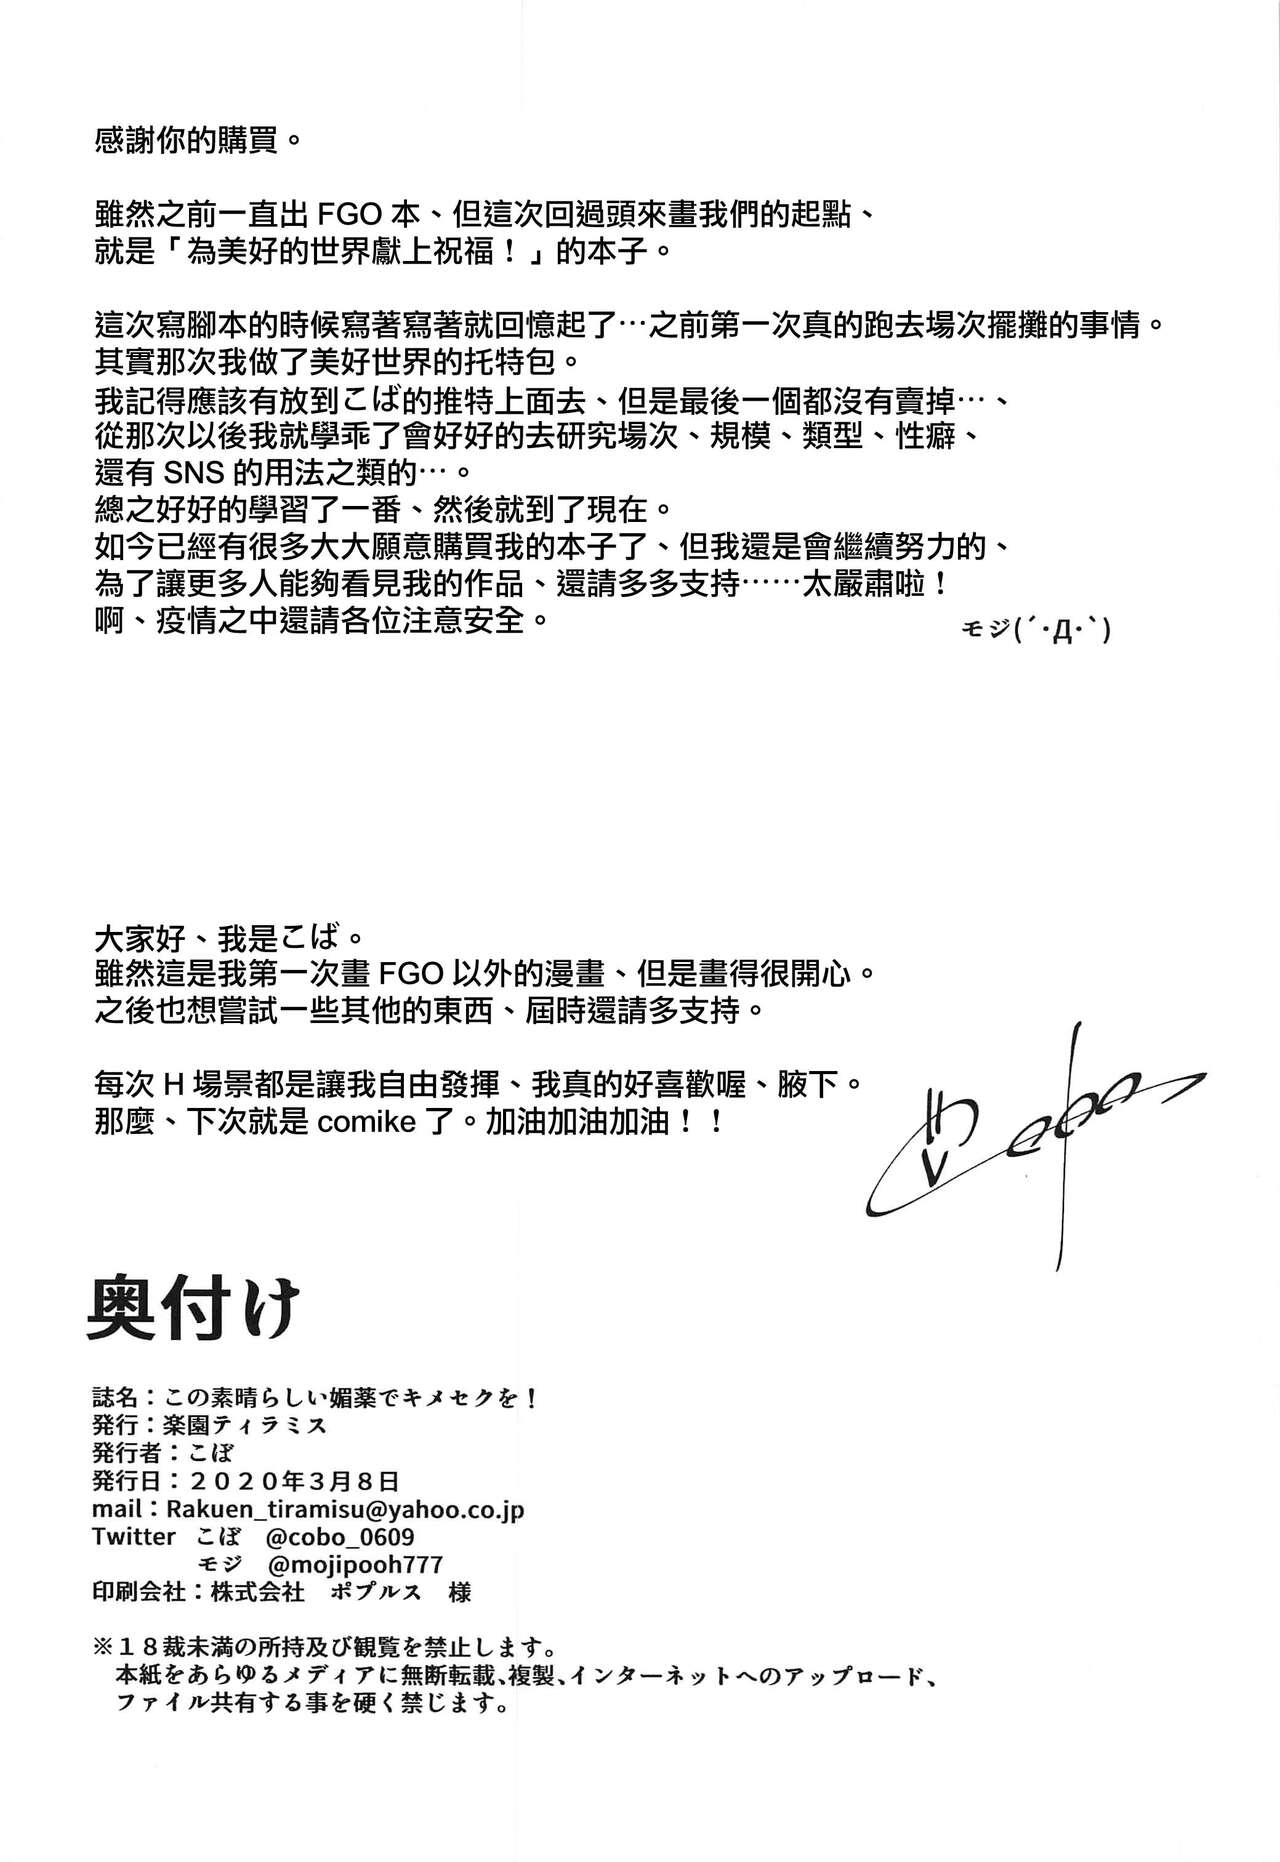 感謝你的購買。
雖然之前一直出 FGO 本、但這次回過頭來畫我們的起點、
就是「為美好的世界獻上祝福！」的本子。
這次寫腳本的時候寫著寫著就回憶起了…之前第一次真的跑去場次擺攤的事情。
其實那次我做了美好世界的托特包。
我記得應該有放到こば的推特上面去、但是最後一個都沒有賣掉…、
從那次以後我就學乖了會好好的去研究場次、規模、類型、性癖、
還有 SNS 的用法之類的…。
總之好好的學習了一番、然後就到了現在。
如今已經有很多大大願意購買我的本子了、但我還是會繼續努力的、
為了讓更多人能夠看見我的作品、還請多多支持……太嚴肅啦！
啊、疫情之中還請各位注意安全。
モジ(´･Д･`)
大家好、我是こば。
雖然這是我第一次畫 FGO 以外的漫畫、但是畫得很開心。
之後也想嘗試一些其他的東西、屆時還請多支持。
每次 H 場景都是讓我自由發揮、我真的好喜歡喔、腋下。
那麼、下次就是 comike 了。加油加油加油！！
奥付け
誌名：この素晴らしい媚薬でキメセクを！
発行：楽園ティラミス
発行者：こぼ
発行日：２０２０年３月８日
mail：Rakuen_tiramisu@yahoo.co.jp
Twitter こぼ @cobo_0609
モジ @mojipooh777
印刷会社：株式会社 ポプルス 様
※１８裁未満の所持及び観覧を禁止します。
本紙をあらゆるメディアに無断転載、複製、インターネットへのアップロード、
ファイル共有する事を硬く禁じます。